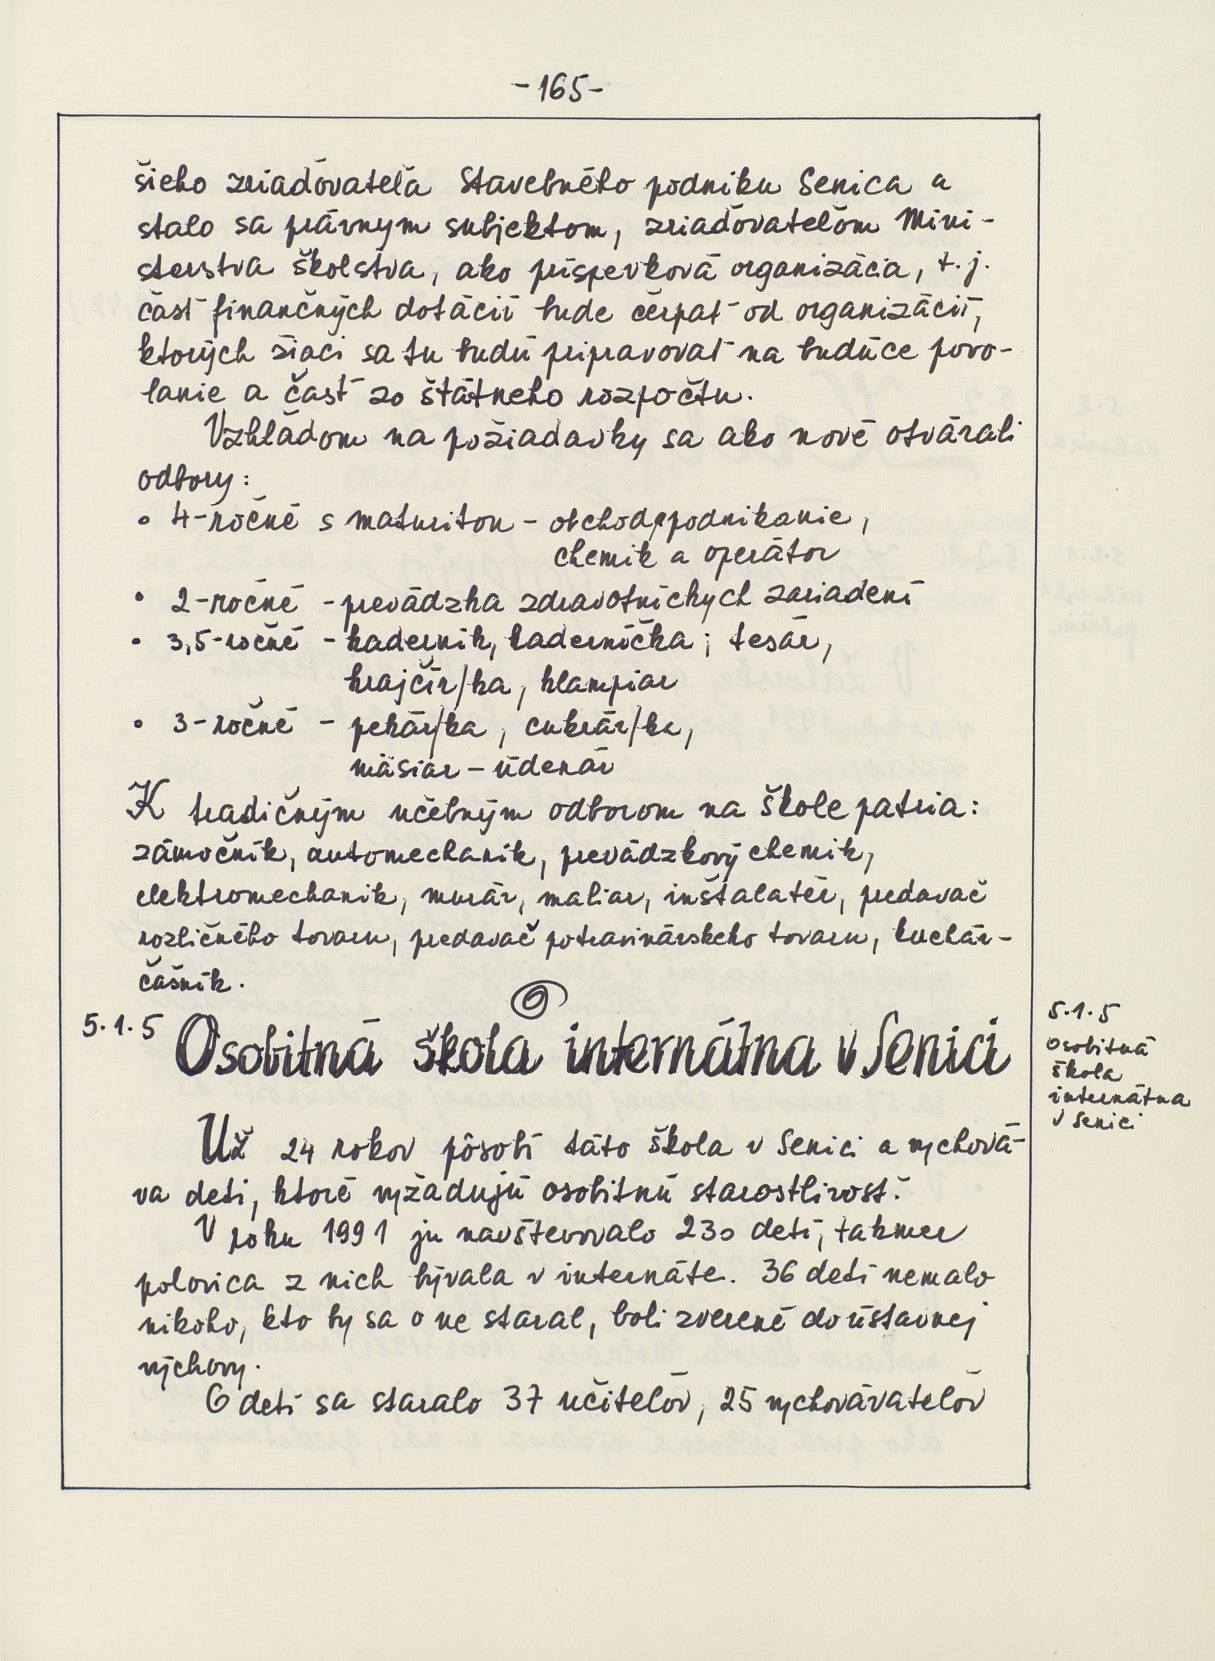 -165-
šieho zriaďovateľa Stavebného podniku Senica a
stalo sa právnym subjektom, zriaďovateľom Mini-
sterstva školstva, ako príspevková organizácia, t.j.
časť finančných dotácií bude čerpať od organizácií,
ktorých žiaci sa tu budú pripravovať na budúce povo-
lanie a časť zo štátneho rozpočtu.
Vzhľadom na požiadavky sa ako nové otvárali
odbory:
• 4-ročné s maturitou - obchod, podnikanie,
chemik a operátor
• 2-ročné - prevádzka zdravotníckych zariadení
• 3,5-ročné - kaderník, kaderníčka; tesár,
krajčír/ka, klampiar
• 3-ročné - pekár/ka, cukrár/ka,
mäsiar - údenár
K tradičným učebným odborom na škole patria:
zámočník, automechanik, prevádzkový chemik,
elektromechanik, murár, maliar, inštalatér, predavač
rozličného tovaru, predavač potravinárskeho tovaru, kuchár-
čašník.
5.1.5 Osobitná škola internátna v Senici
5.1.5
Osobitná
škola
internátna
v Senici
Už 24 rokov pôsobí táto škola v Senici a vychová-
va deti, ktoré vyžadujú osobitnú starostlivosť.
V roku 1991 ju navštevovalo 230 detí, takmer
polovica z nich bývala v internáte. 36 detí nemalo
nikoho, kto by sa o ne staral, boli zverené do ústavnej
výchovy.
O deti sa staralo 37 učiteľov, 25 vychovávateľov